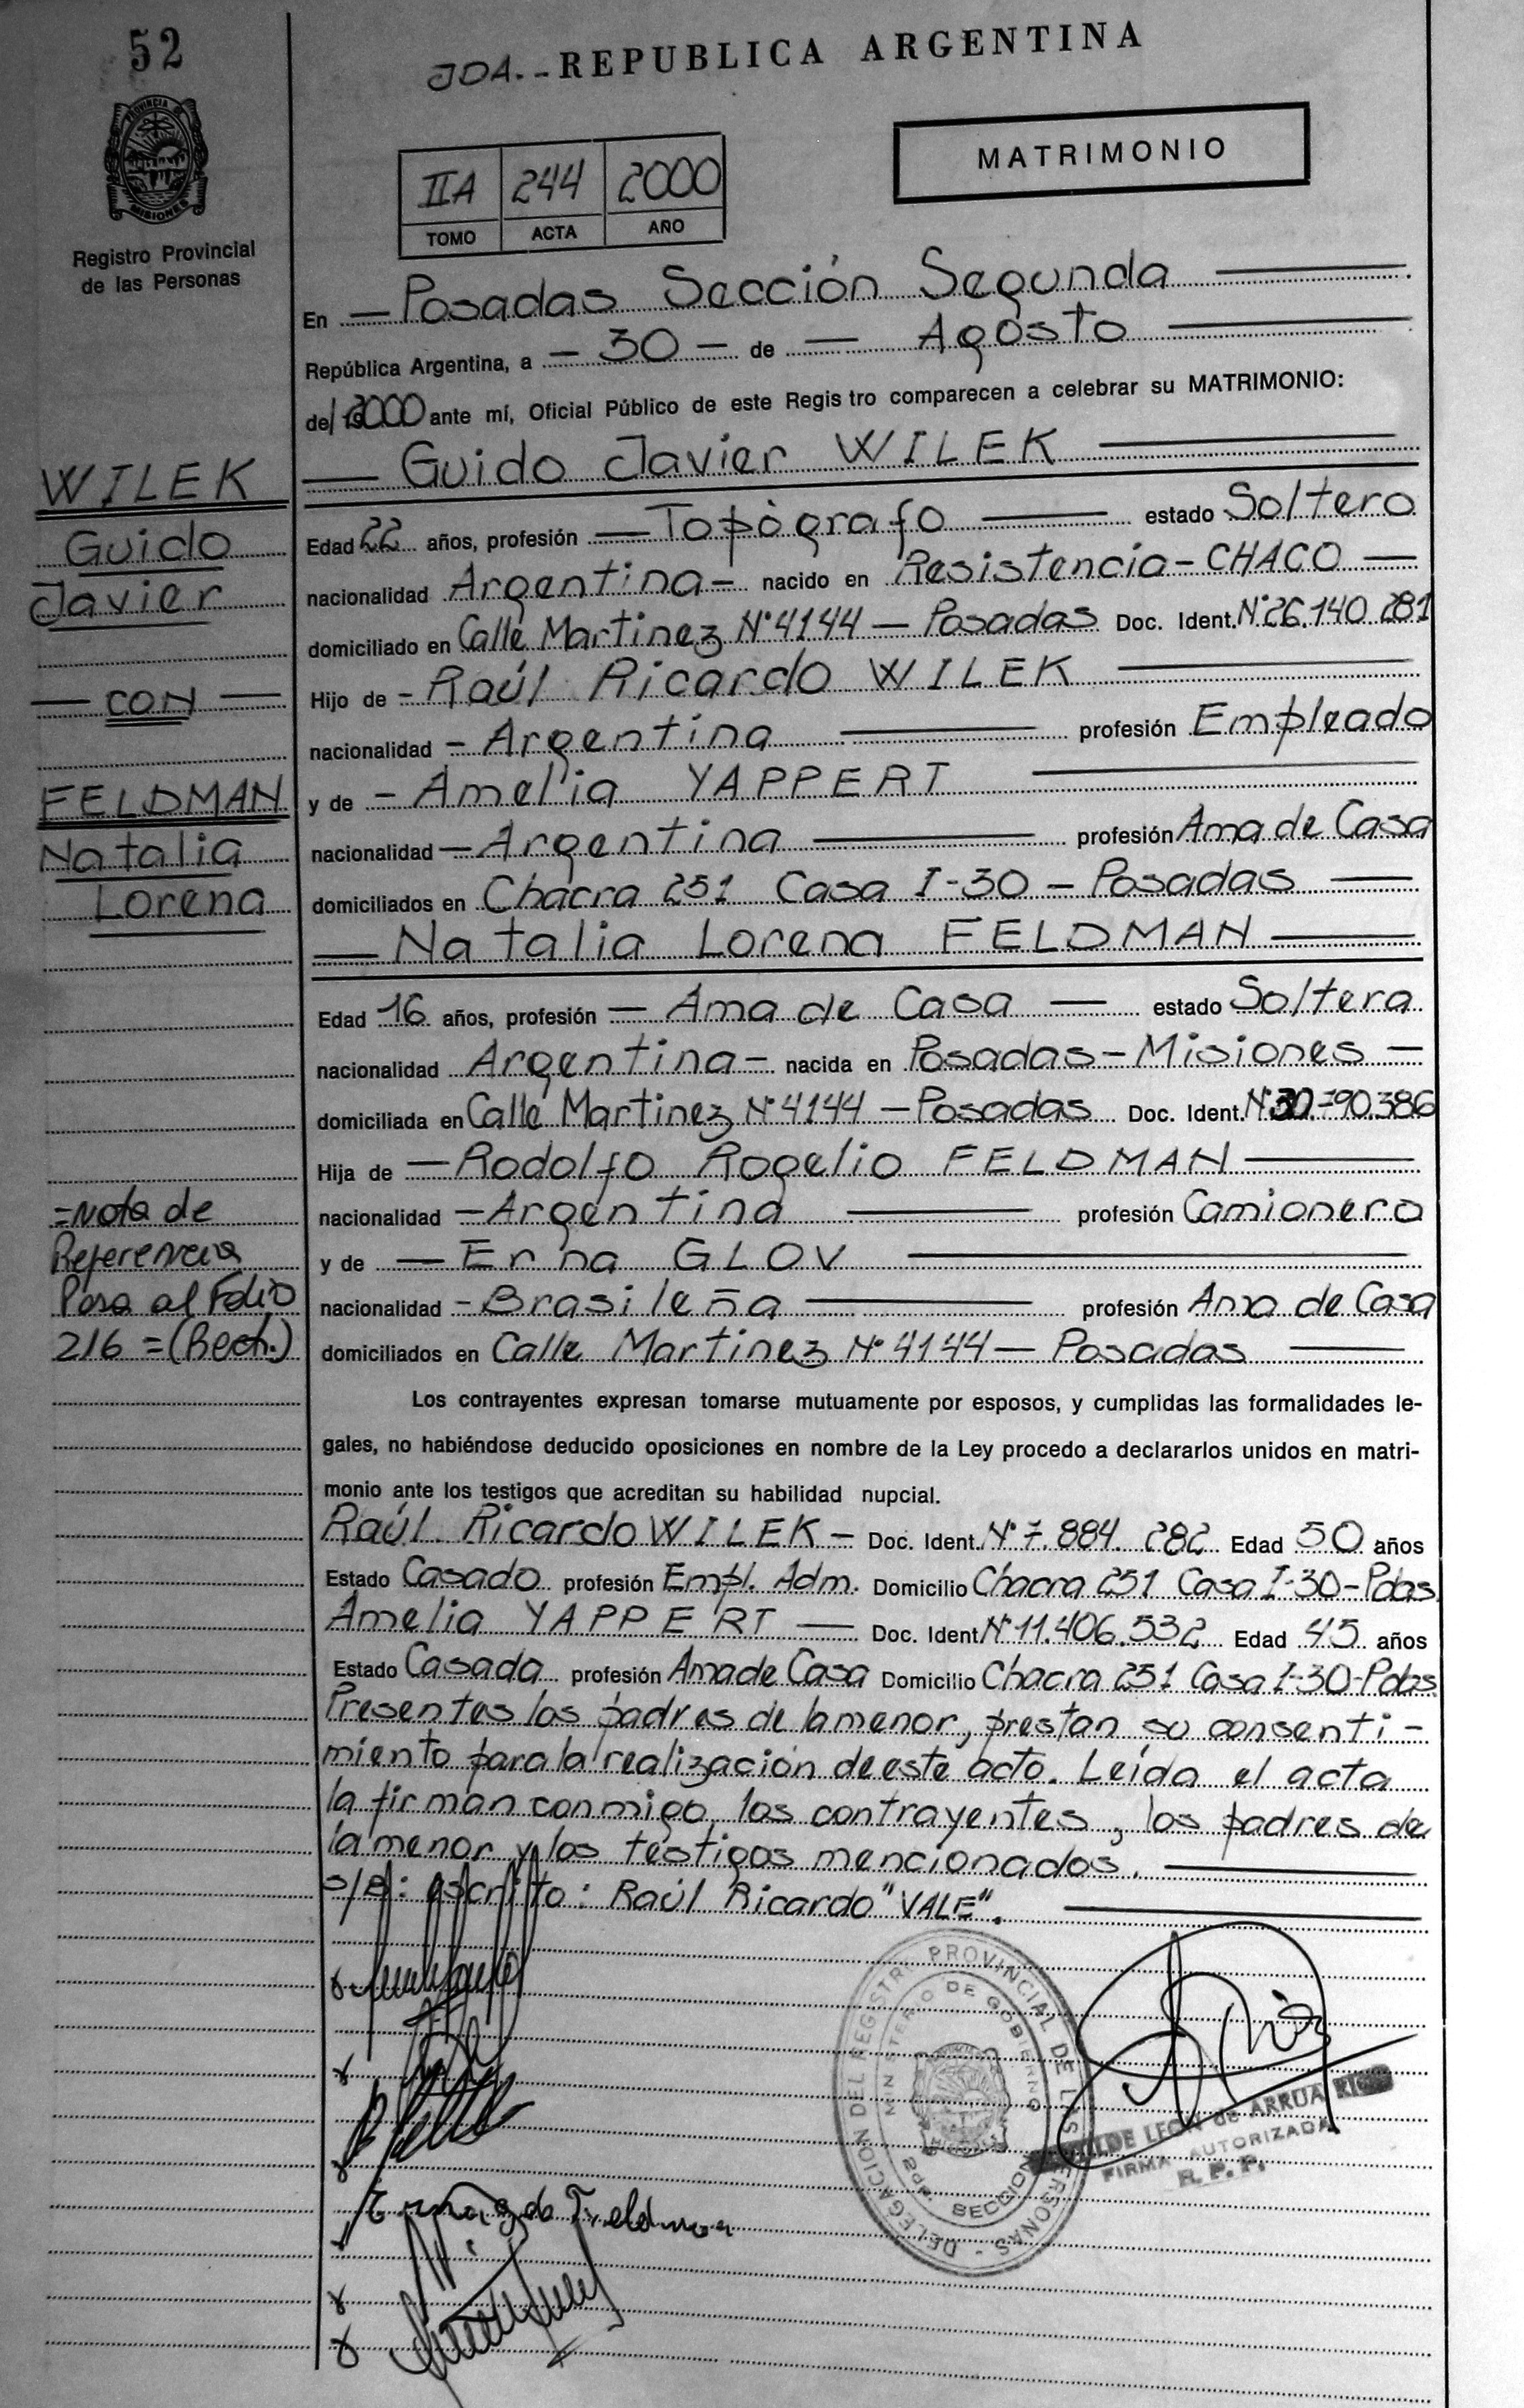 52
JDA.- REPUBLICA ARGENTINA
PROVINCIA DE
MISIONES
Registro Provincial
de las Personas
MATRIMONIO
IIA 244 2000
TOMO ACTA AÑO
En — Posadas Sección Segunda —
República Argentina, a — 30 — de — Agosto —
del 2000 ante mí, Oficial Público de este Registro comparecen a celebrar su MATRIMONIO:
— Guido Javier WILEK —
WILEK
Guido
Javier
— CON —
FELDMAN
Natalia
Lorena
Edad 22 años, profesión — Topógrafo — estado Soltero
nacionalidad Argentina — nacido en Resistencia - CHACO —
domiciliado en Calle Martinez N° 4144 — Posadas Doc. Ident. N° 26.140.281
Hijo de — Raúl Ricardo WILEK —
nacionalidad — Argentina — profesión Empleado
y de — Amelia YAPPERT —
nacionalidad — Argentina — profesión Ama de Casa
domiciliados en Chacra 251 Casa I-30 — Posadas —
— Natalia Lorena FELDMAN —
Edad 16 años, profesión — Ama de Casa — estado Soltera
nacionalidad Argentina — nacida en Posadas - Misiones —
domiciliada en Calle Martinez N° 4144 — Posadas Doc. Ident. N° 30.790.386
Hija de — Rodolfo Rogelio FELDMAN —
nacionalidad — Argentina — profesión Camionero
y de — Erna GLOV —
nacionalidad — Brasileña — profesión Ama de Casa
domiciliados en Calle Martinez N° 4144 — Posadas —
=Nota de
Referencia
Pasa al Folio
216 = (Rect.)
Los contrayentes expresan tomarse mutuamente por esposos, y cumplidas las formalidades le-
gales, no habiéndose deducido oposiciones en nombre de la Ley procedo a declararlos unidos en matri-
monio ante los testigos que acreditan su habilidad nupcial.
Raúl Ricardo WILEK — Doc. Ident. N° 7.884.282 Edad 50 años
Estado Casado profesión Empl. Adm. Domicilio Chacra 251 Casa I-30-Pdas.
Amelia YAPPERT — Doc. Ident N° 11.406.532 Edad 45 años
Estado Casada profesión Ama de Casa Domicilio Chacra 251 Casa I-30-Pdas
Presentes los padres de la menor, prestan su consenti-
miento para la realización de este acto. Leída el acta
la firman conmigo, los contrayentes, los padres de
la menor y los testigos mencionados. —
s/B: escrito: Raúl Ricardo "VALE". —
DELEGACION DEL REGISTRO PROVINCIAL DE LAS PERSONAS
MINISTERIO DE GOBIERNO
SECCION
LEON de ARRUA
FIRMA AUTORIZADA
R. P. P.
Erna g de Feldman